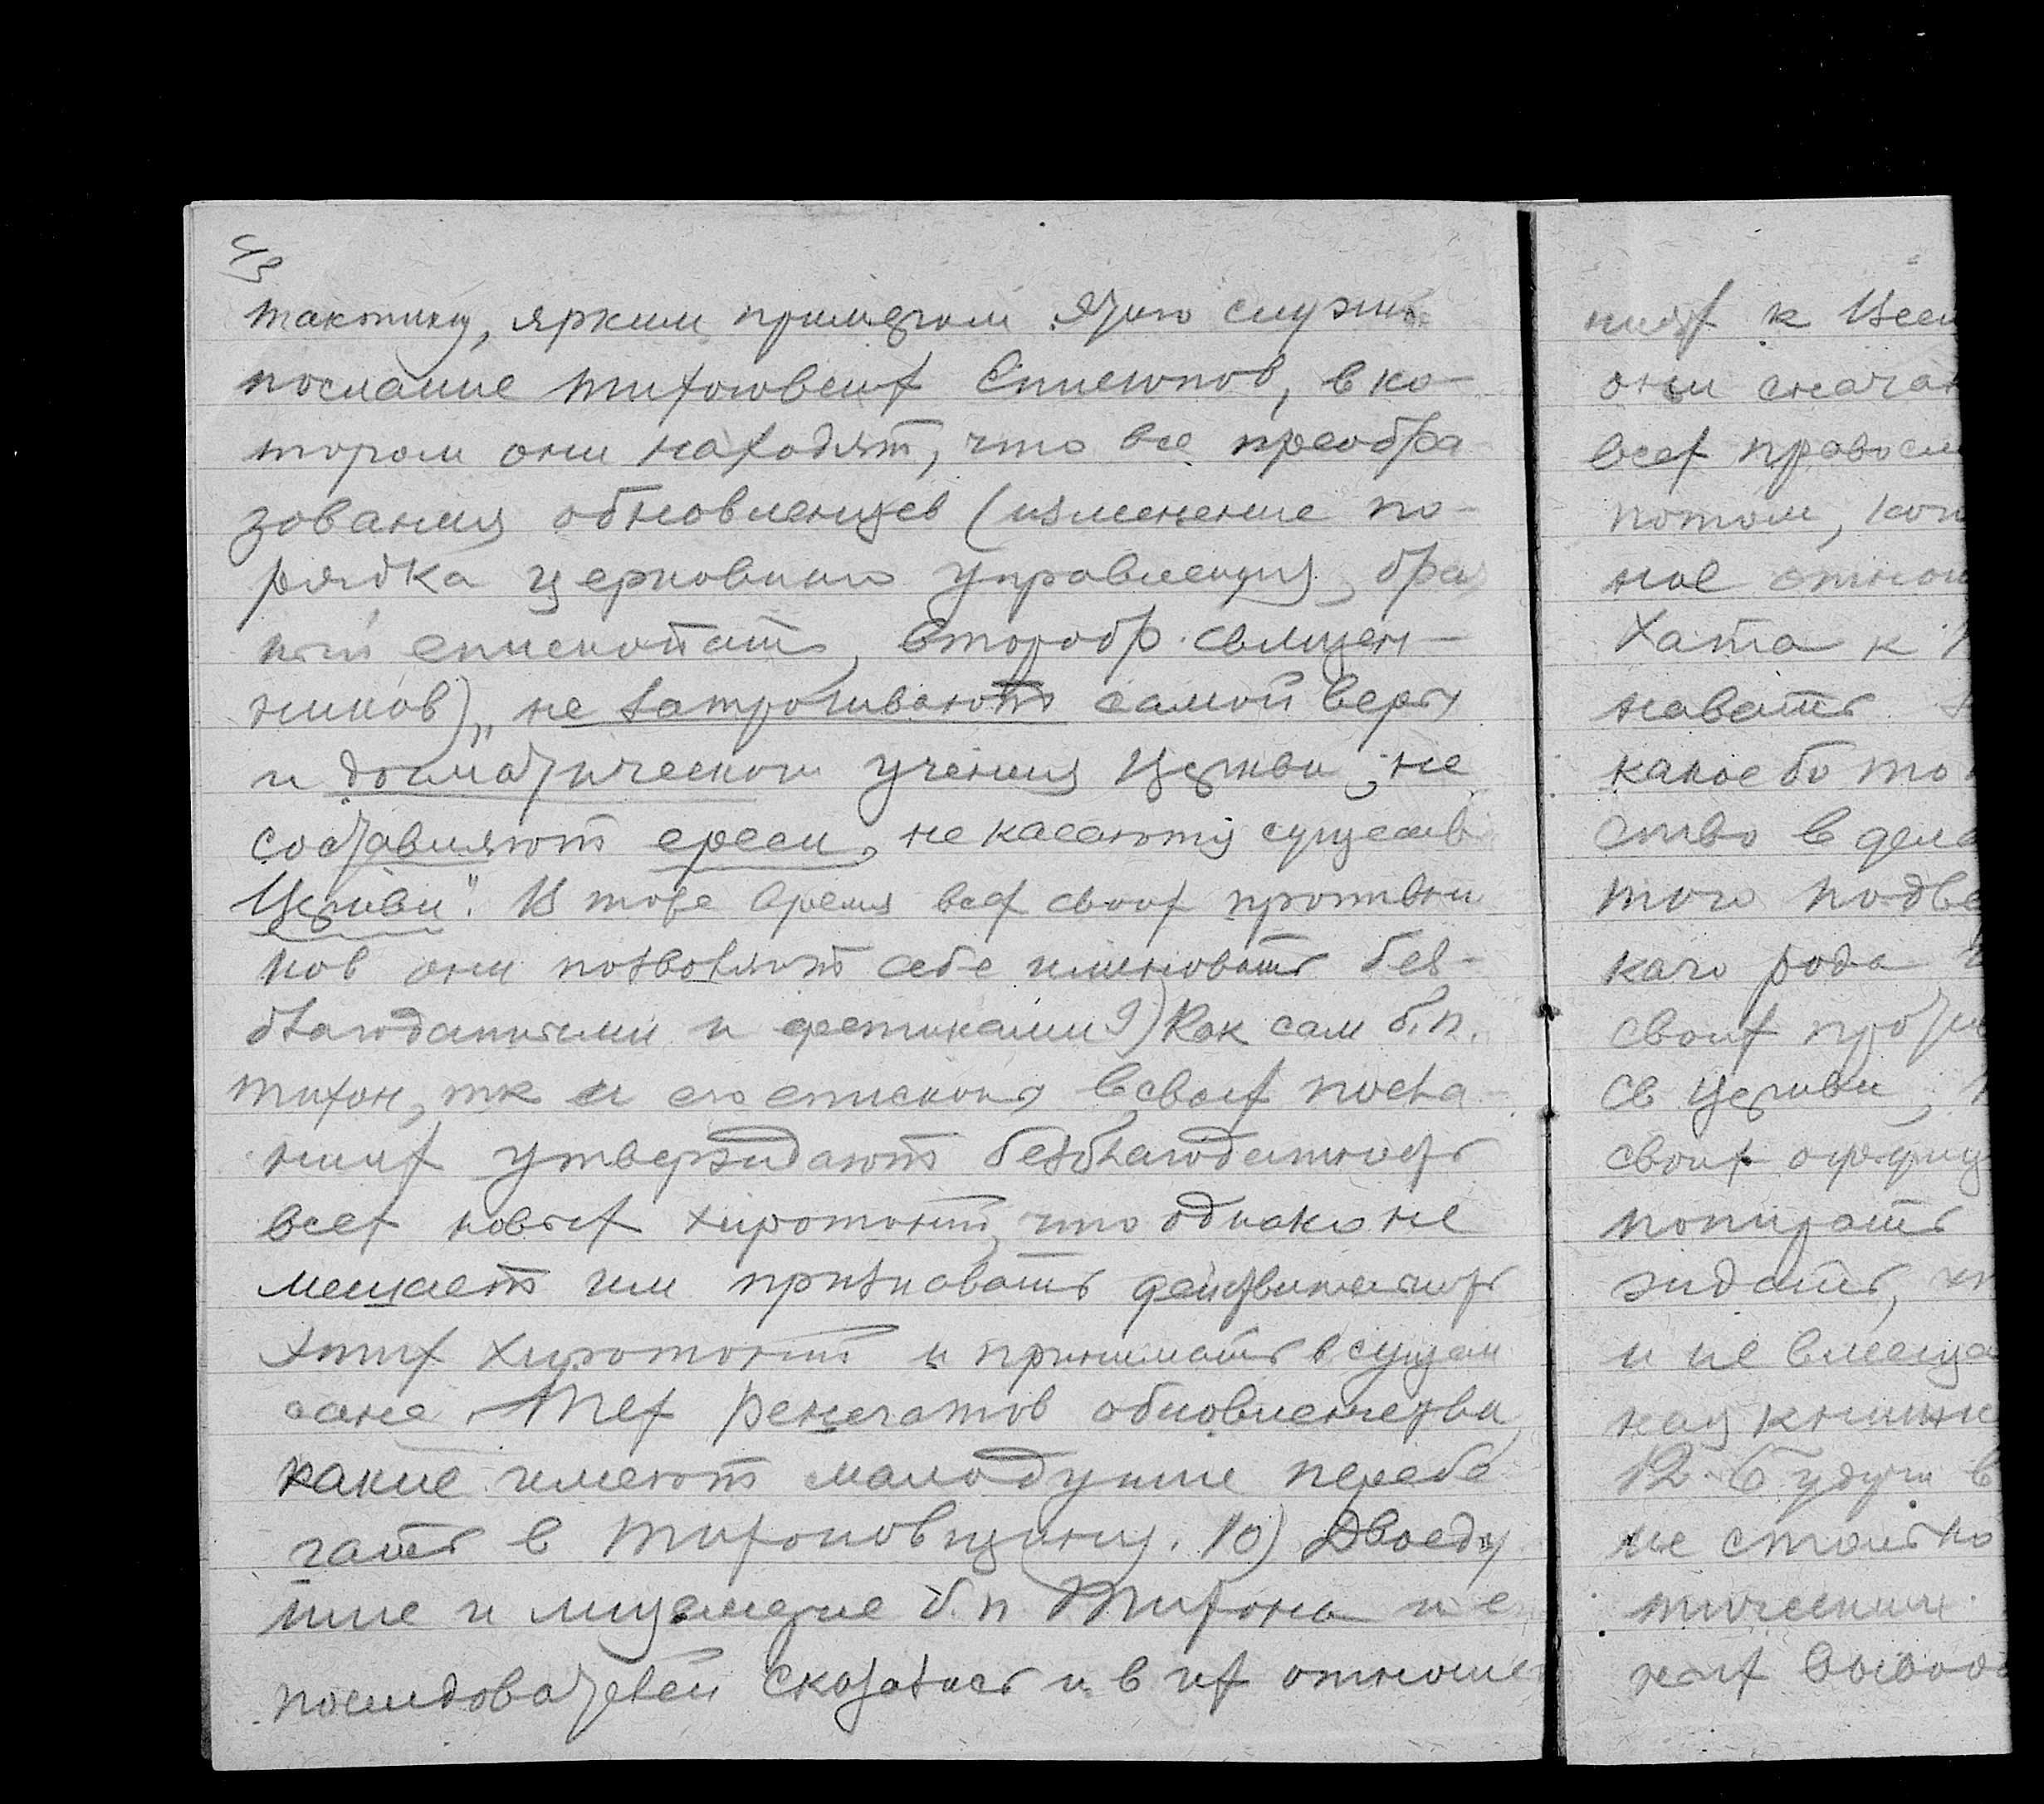 43
тактику, ярким примером этого служит
послание тихоновских Епископов, в ко-
тором они находят, что все преобра
зования обновленцев (изменение по-
рядка церковного управления, бра
ный епископат, второбр. священ-
ников) „не затрогивают самой веры
и догматического учения Церкви, не
составляют ереси, не касаются существ
Церкви". В тоже время всех своих противни
ков они позволяют себе именовать без-
благодатными и еретиками 9) Как сам б. п.
Тихон, так и его епископы в своих посла-
ниях утверждают безблагодатность
всех новых хиротоний, что однако не
мешает им признавать действительность
этих хиротоний и принимать в сущем
сане тех ренегатов обновленчества
какие имеют малодушие перебе
гать в тихоновщину. 10) Двоеду
шие и лицемерие б. п Тихона и е
последователей сказалось и в их отноше
ниях к Всел
они снача
всех правосл
потом, ко
ное отнош
хата к
навать
какое бо то
ство в дела
того подве
кого рода
своих про
св Церкви,
своих
попирать
ждать,
и не вмеща
ная книж
12. Будучи в
не столько
тическим
ных